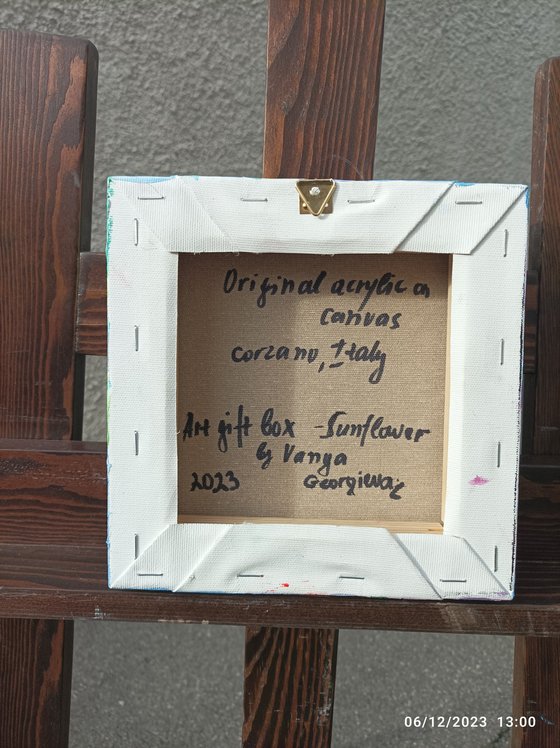 Original acrylic on
canvas
Corzano, Italy
Art gift box - Sunflower
by Vanya
2023 Georgieva
06/12/2023 13:00